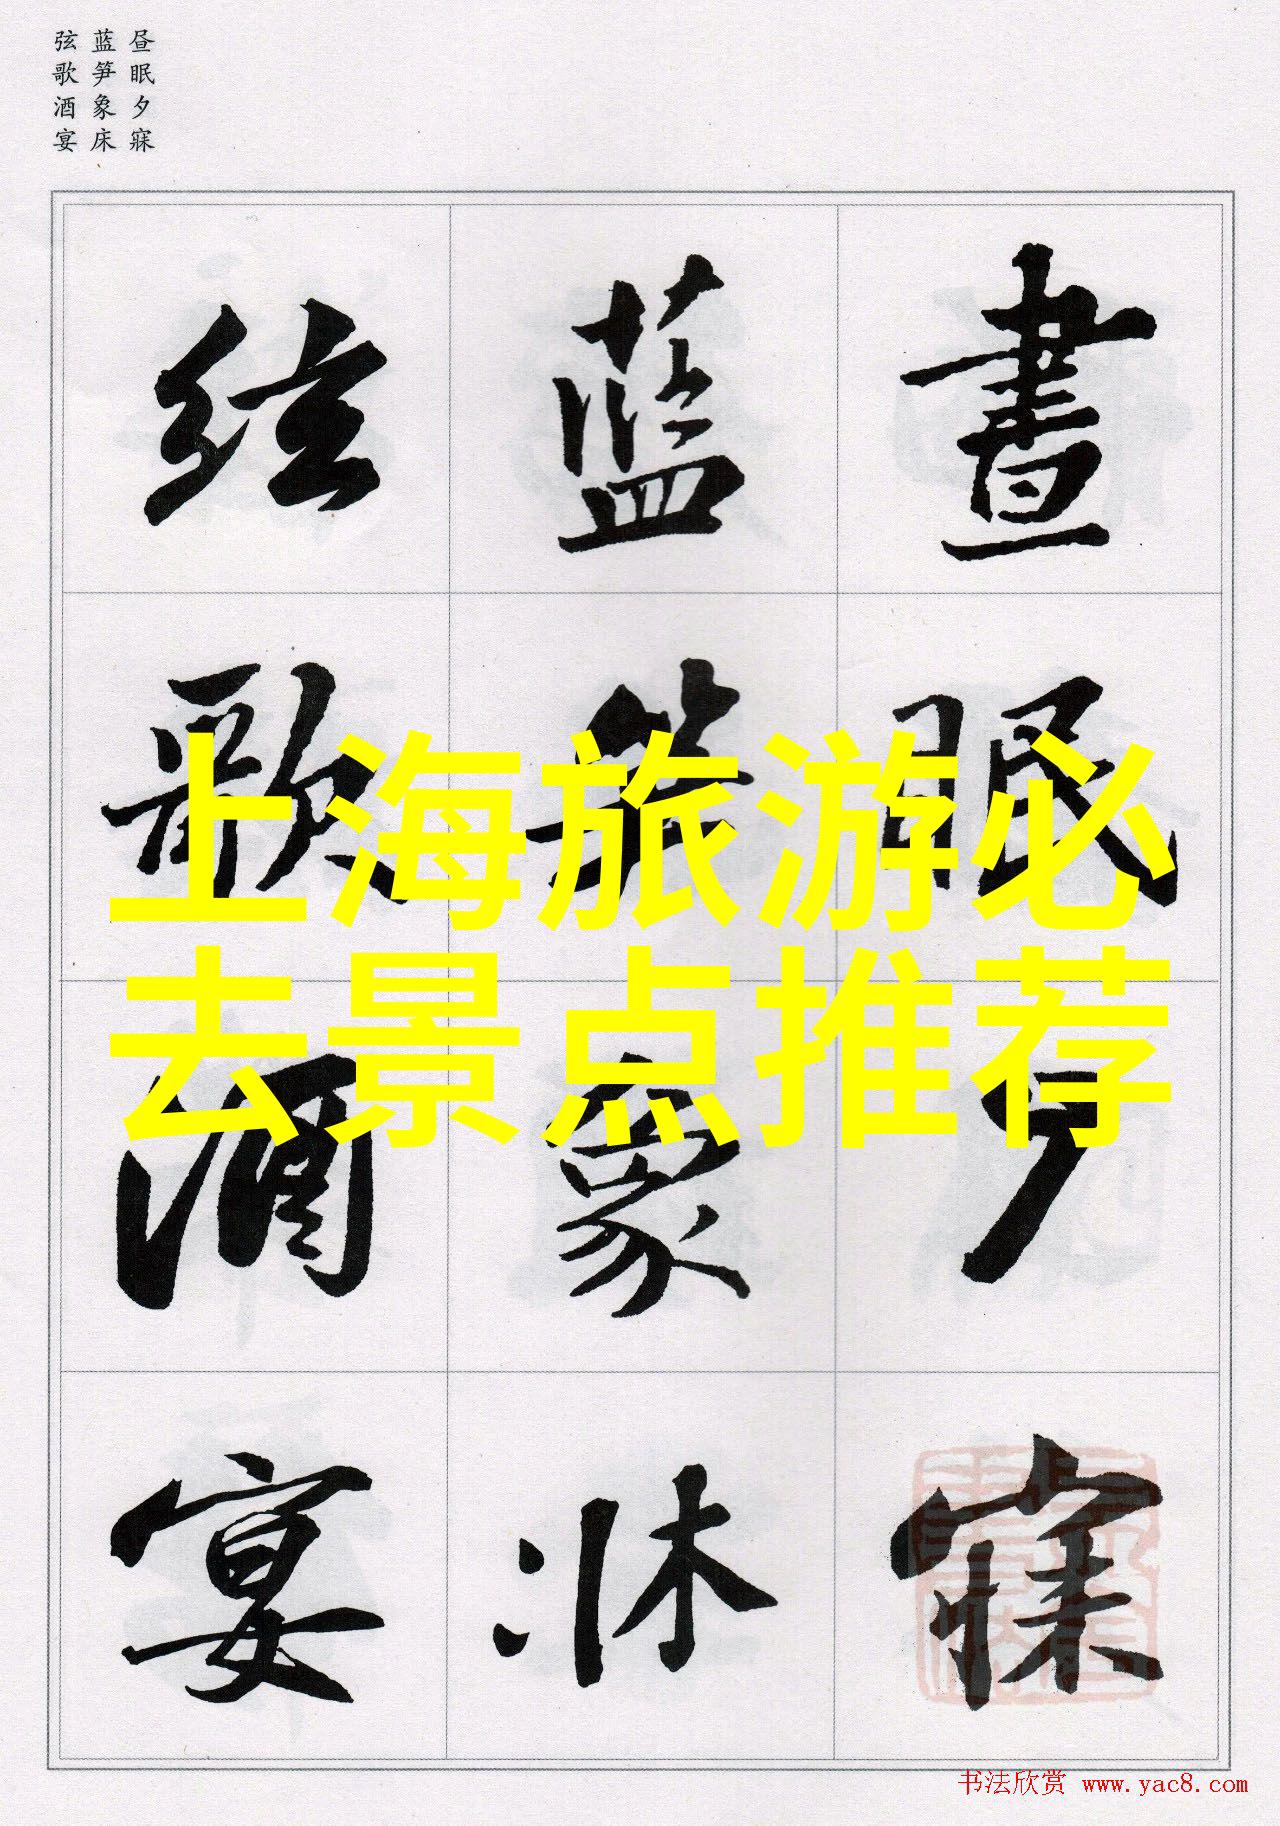 昼眠夕寐
蓝笋象床
弦歌酒宴
晝眠夕寐
蓝笋象牀
弦歌酒宴
上海旅游必
去景点推荐
书法欣赏 www.yac8.com